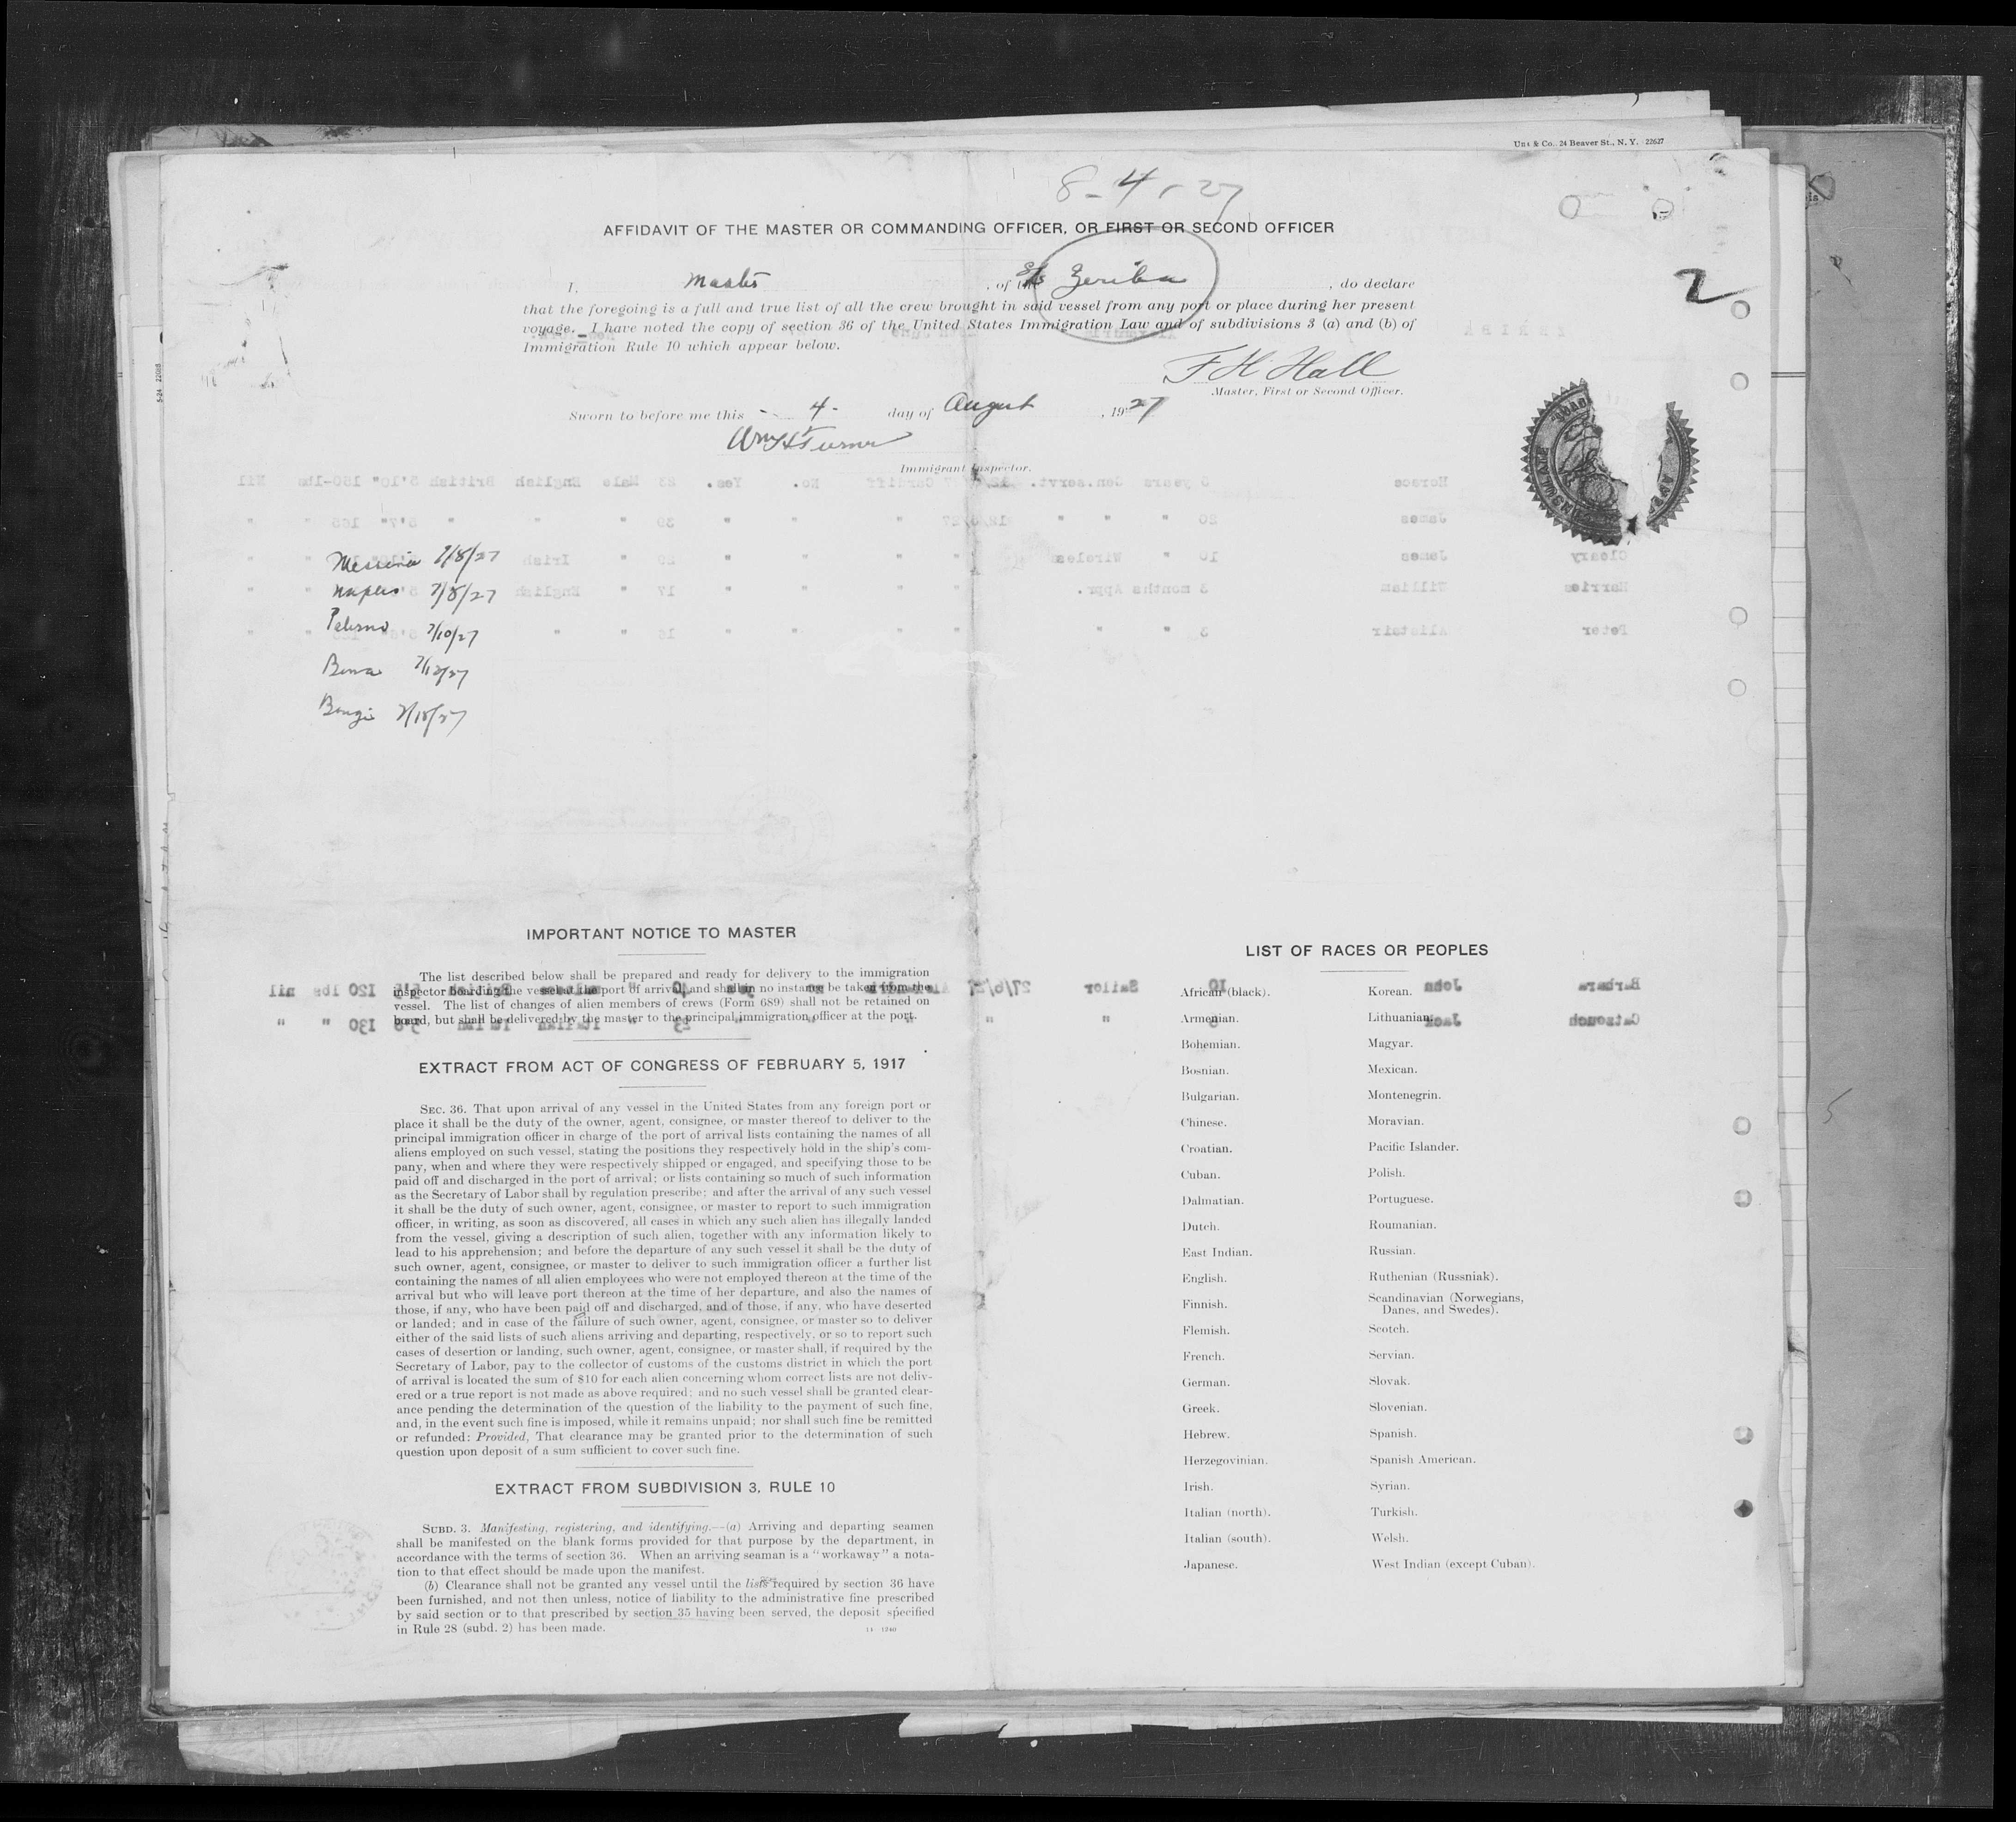 Co. 24 Beaver St., N. Y. 22627
8-4-27
AFFIDAVIT OF THE MASTER OR COMMANDING OFFICER, OR FIRST OR SECOND OFFICER
I, Master, of the S/S Zeriba, do declare
that the foregoing is a full and true list of all the crew brought in said vessel from any port or place during her present
voyage. I have noted the copy of section 36 of the United States Immigration Law and of subdivisions 3 (a) and (b) of
Immigration Rule 10 which appear below.
2
F H Hall
Master, First or Second Officer.
Sworn to before me this 4 day of August, 1927
Wm H Turner
Immigrant Inspector.
Messina 7/8/27
Naples 7/8/27
Palermo 7/10/27
Bona 7/12/27
Bougie
IMPORTANT NOTICE TO MASTER
The list described below shall be prepared and ready for delivery to the immigration
inspector boarding the vessel at the port of arrival, and shall in no instance be taken from the
vessel. The list of changes of alien members of crews (Form 689) shall not be retained on
board, but shall be delivered by the master to the principal immigration officer at the port.
EXTRACT FROM ACT OF CONGRESS OF FEBRUARY 5, 1917
SEC. 36. That upon arrival of any vessel in the United States from any foreign port or
place it shall be the duty of the owner, agent, consignee, or master thereof to deliver to the
principal immigration officer in charge of the port of arrival lists containing the names of all
aliens employed on such vessel, stating the positions they respectively hold in the ship's com-
pany, when and where they were respectively shipped or engaged, and specifying those to be
paid off and discharged in the port of arrival; or lists containing so much of such information
as the Secretary of Labor shall by regulation prescribe; and after the arrival of any such vessel
it shall be the duty of such owner, agent, consignee, or master to report to such immigration
officer, in writing, as soon as discovered, all cases in which any such alien has illegally landed
from the vessel, giving a description of such alien, together with any information likely to
lead to his apprehension; and before the departure of any such vessel it shall be the duty of
such owner, agent, consignee, or master to deliver to such immigration officer a further list
containing the names of all alien employees who were not employed thereon at the time of the
arrival but who will leave port thereon at the time of her departure, and also the names of
those, if any, who have been paid off and discharged, and of those, if any, who have deserted
or landed; and in case of the failure of such owner, agent, consignee, or master so to deliver
either of the said lists of such aliens arriving and departing, respectively, or so to report such
cases of desertion or landing, such owner, agent, consignee, or master shall, if required by the
Secretary of Labor, pay to the collector of customs of the customs district in which the port
of arrival is located the sum of $10 for each alien concerning whom correct lists are not deliv-
ered or a true report is not made as above required; and no such vessel shall be granted clear-
ance pending the determination of the question of the liability to the payment of such fine,
and, in the event such fine is imposed, while it remains unpaid; nor shall such fine be remitted
or refunded: Provided, That clearance may be granted prior to the determination of such
question upon deposit of a sum sufficient to cover such fine.
EXTRACT FROM SUBDIVISION 3, RULE 10
SUBD. 3. Manifesting, registering, and identifying.—(a) Arriving and departing seamen
shall be manifested on the blank forms provided for that purpose by the department, in
accordance with the terms of section 36. When an arriving seaman is a "workaway" a nota-
tion to that effect should be made upon the manifest.
(b) Clearance shall not be granted any vessel until the lists required by section 36 have
been furnished, and not then unless, notice of liability to the administrative fine prescribed
by said section or to that prescribed by section 35 having been served, the deposit specified
in Rule 28 (subd. 2) has been made.
LIST OF RACES OR PEOPLES
African (black).
Armenian.
Bohemian.
Bosnian.
Bulgarian.
Chinese.
Croatian.
Cuban.
Dalmatian.
Dutch.
East Indian.
English.
Finnish.
Flemish.
French.
German.
Greek.
Hebrew.
Herzegovinian.
Irish.
Italian (north).
Italian (south).
Japanese.
Korean.
Lithuanian.
Magyar.
Mexican.
Montenegrin.
Moravian.
Pacific Islander.
Polish.
Portuguese.
Roumanian.
Russian.
Ruthenian (Russniak).
Scandinavian (Norwegians,
Danes, and Swedes).
Scotch.
Servian.
Slovak.
Slovenian.
Spanish.
Spanish American.
Syrian.
Turkish.
Welsh.
West Indian (except Cuban).